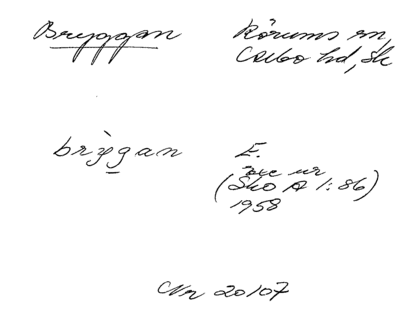 Bryggan
Rörums sn,
Albo hd, Sk
brỳgan
E.
(Sko A 1:86)
1958
Nr 20107